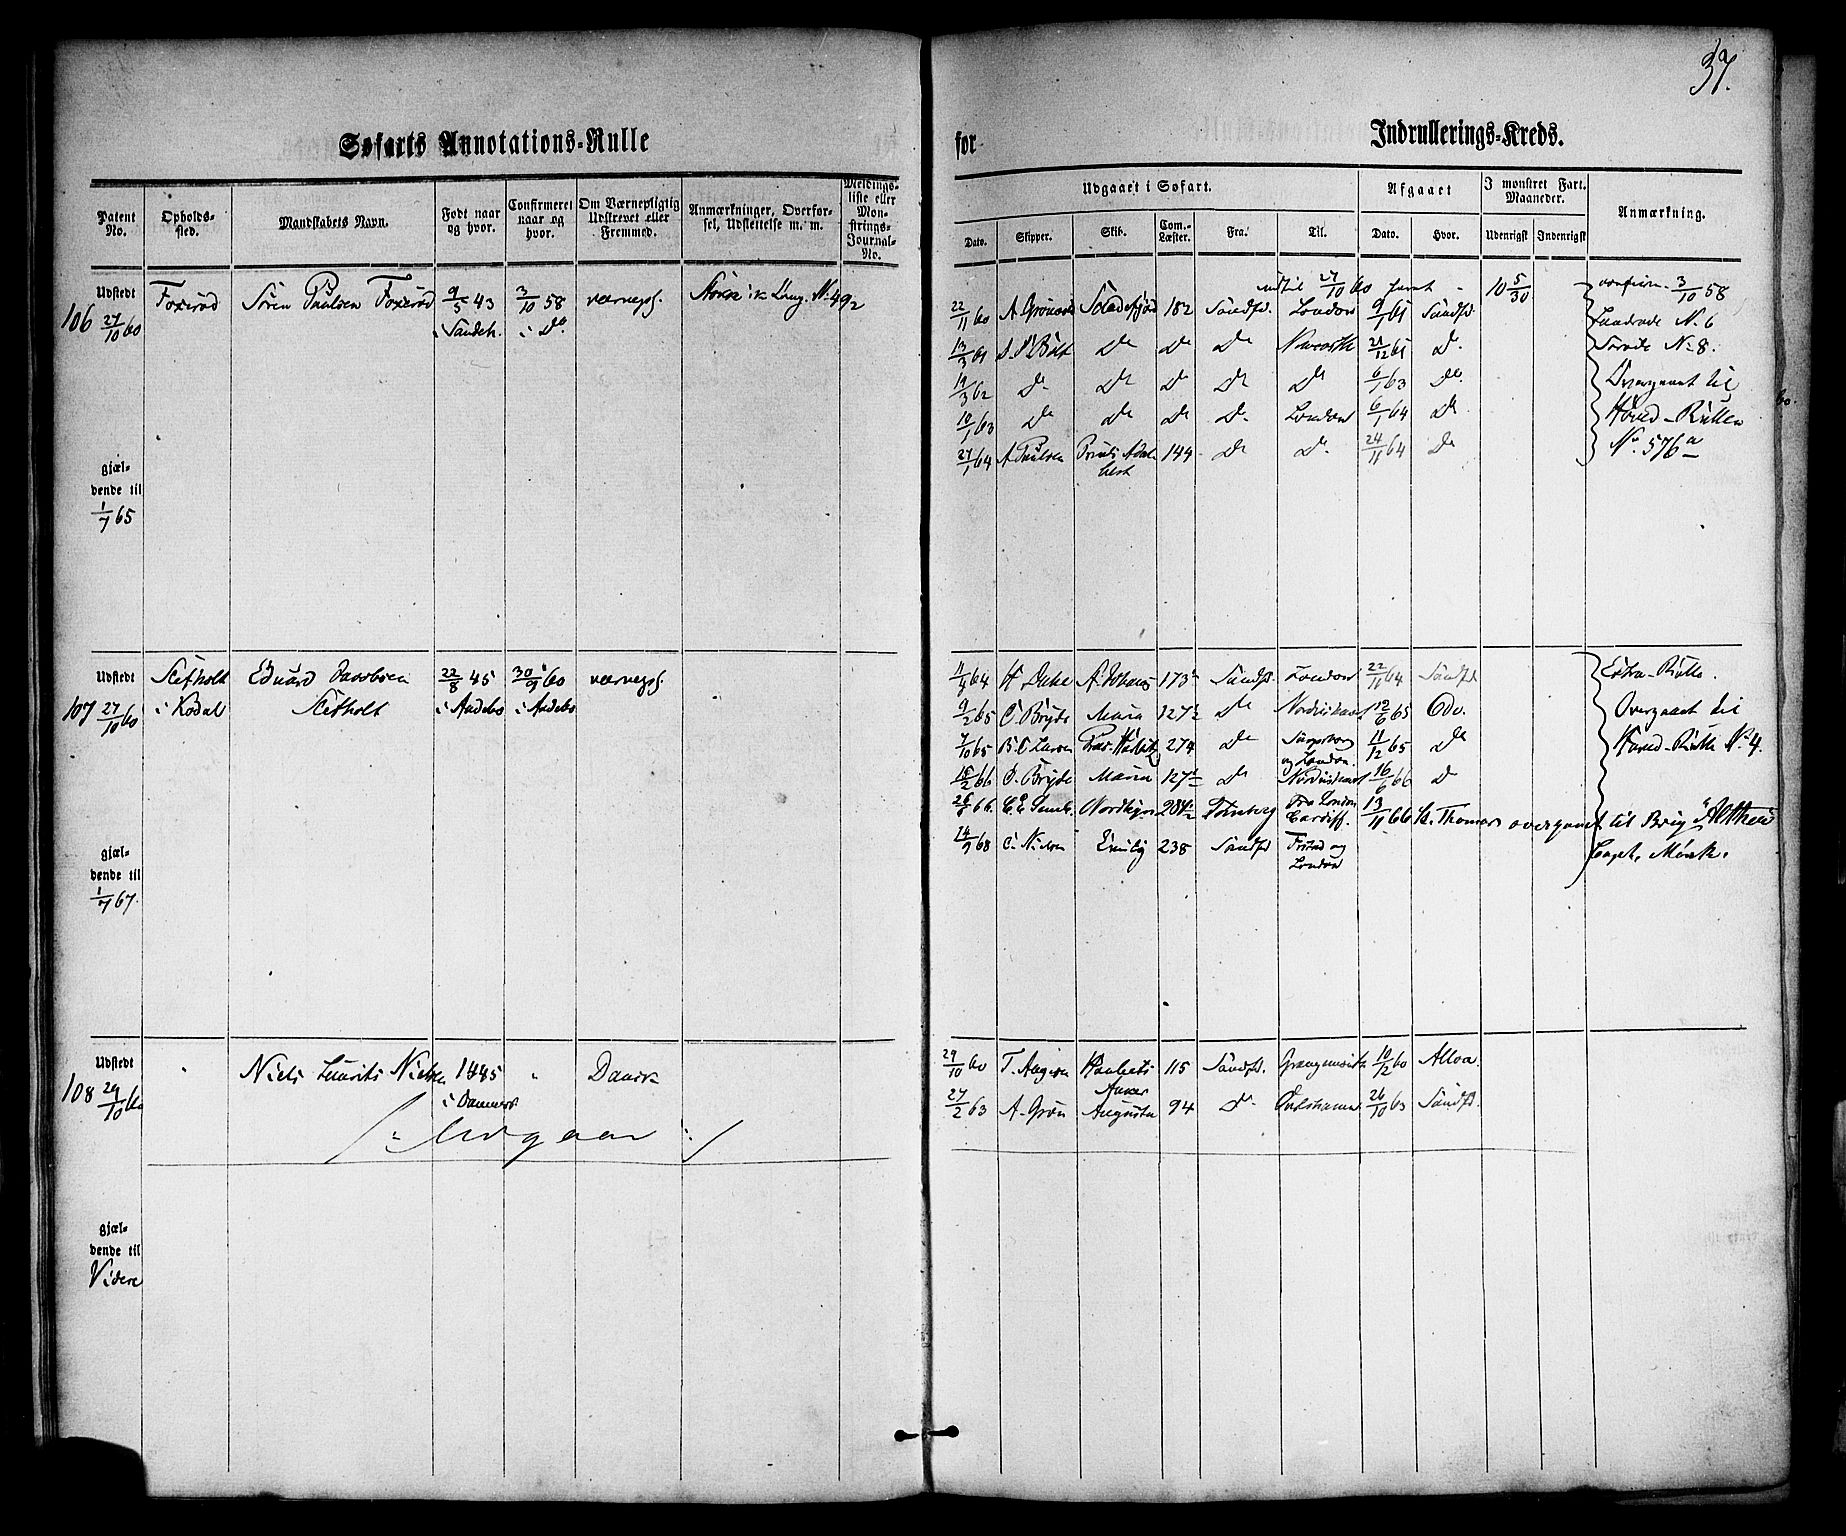 37.
Søfarts Annotations-Rulle for Indrullerings-Kreds.
Patent No.
Opholds-sted.
Mandskabets Navn.
Født naar og hvor.
Confirmeret naar og hvor.
Om Værnepligtig Udskrevet eller Fremmed.
Anmærkninger, Overførsel, Udslettelse m. m.
Meldings-liste eller Mon-strings-Journal-No.
Udgaaet i Søfart.
Afgaaet
I mønstret Fart. Maaneder.
Anmærkning.
Dato. Skipper. Skib. Com.-Læster. Fra. Til. Dato. Hvor. Udenrigsk Indenrigsk
Udstedt
106 27/10 60
Foxerød
Søren Paulsen Foxerød
9/5 43
i Sandeh.
3/10 58
i Do
værnepl.
No 492
indtil 27/10 60 faret
10 5/30
3/10 58
22/11 60 A. Sandefjord 182 Sandfd London 9/1 61 Sandfd
Landrode No 6
13/3 61 Do Do Do 21/12 61 Do
Sørode No 8.
19/3 62 Do Do Do Do Do 6/1 63 Do
Overgaaet til
10/1 63 Do Do Do Do London 6/1 64 Do
Hoved-Rullen
27/1 64 A. Paulsen Prinds Adalbert 144 Do Do 24/11 64 Do
No 576a
gjæl-
dende til
1/7 65
Udstedt
107 27/10 60
Skifholt
i Kodal
Eduard Jacobsen
Skifholt
22/8 45
i Andebo
30/9 60
i Andebo
værnepl.
11/4 64 H. 173 Sandfd London 22/11 64 Sandfd
Extra-Rulle.
9/2 65 C. Bryde Maria 127½ Do 12/6 65 Do.
Overgaaet til
7/10 65 B. C. Larsen 274 Do Sarpsborg og London 11/12 65 Do
Hoved-Rulle No 4.
15/2 66 C. Bryde Maria 127½ Do 16/6 66 Do
26/8 66 Tønsberg Fra London Cardiff. 13/11 66 St. Thomas overgaaet til Brig "Althea"
14/9 68 C. Nielsen Emily 238 Sandfd og London
Capt. Mørk.
gjæl-
dende til
1/7 67.
Udstedt
108 29/10 60
Niels Laurits Nielsen
1845
i Danmark
Dansk
29/10 60 T. 115 Sandfd. 10/12 60 Alloa.
27/2 63 A. Grøn Augusta 94 Do 26/10 63 Sandfd.
/: Udgaar :/
gjæl-
dende til
Videre